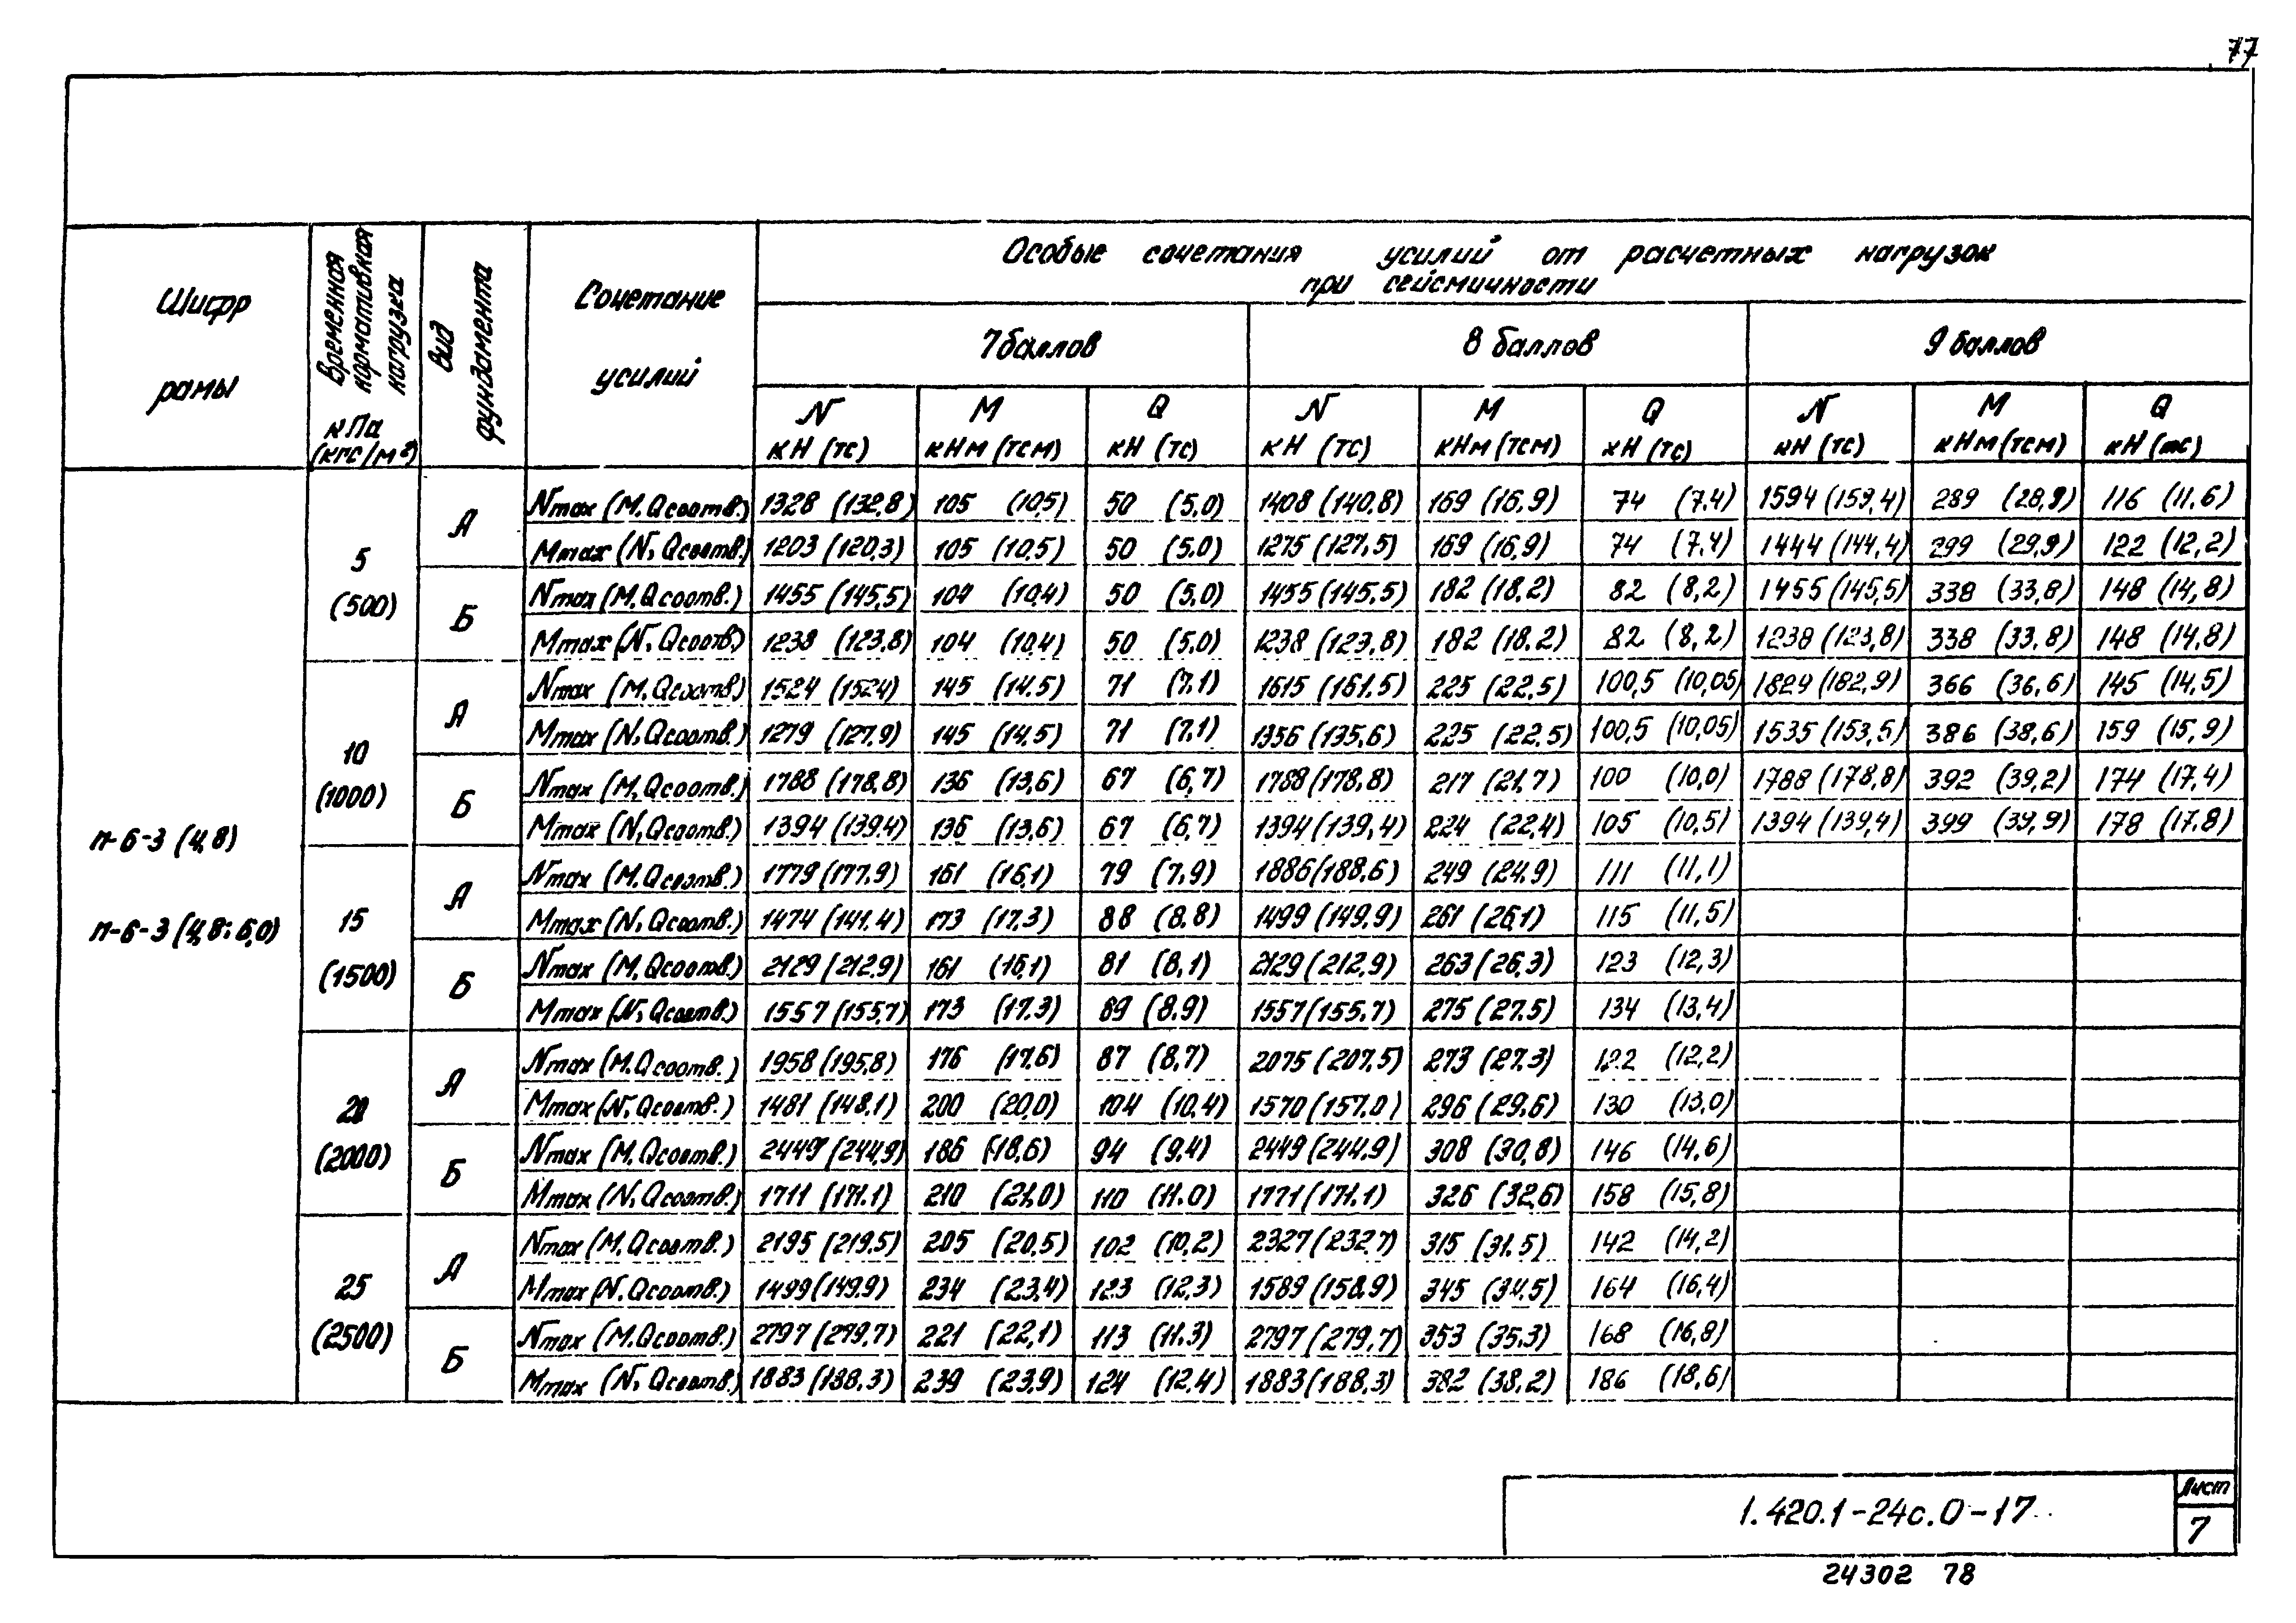 77
Шифр рамы
Временная нормативная нагрузка кПа (кгс/м²)
Вид фундамента
Сочетание усилий
Особые сочетания усилий от расчетных нагрузок
при сейсмичности
7 баллов 8 баллов 9 баллов
N M Q N M Q N M Q
кН (тс) кНм (тсм) кН (тс) кН (тс) кНм (тсм) кН (тс) кН (тс) кНм (тсм) кН (тс)
п-6-3 (4,8)
п-6-3 (4,8; 6,0)
5 (500)
А
Nmax (M, Qсоотв.) 1328 (132,8) 105 (10,5) 50 (5,0) 1408 (140,8) 169 (16,9) 74 (7.4) 1594 (159,4) 289 (28,9) 116 (11.6)
Mmax (N, Qсоотв.) 1203 (120,3) 105 (10,5) 50 (5,0) 1275 (127,5) 169 (16,9) 74 (7.4) 1444 (144,4) 299 (29,9) 122 (12,2)
Б
Nmax (M, Qсоотв.) 1455 (145,5) 104 (10,4) 50 (5,0) 1455 (145,5) 182 (18,2) 82 (8,2) 1455 (145,5) 338 (33,8) 148 (14,8)
Mmax (N, Qсоотв.) 1238 (123,8) 104 (10,4) 50 (5,0) 1238 (123,8) 182 (18.2) 82 (8,2) 1238 (123,8) 338 (33,8) 148 (14,8)
10 (1000)
А
Nmax (M, Qсоотв.) 1524 (1524) 145 (14.5) 71 (7.1) 1615 (161.5) 225 (22,5) 100,5 (10,05) 1829 (182,9) 366 (36,6) 145 (14,5)
Mmax (N, Qсоотв.) 1279 (127.9) 145 (14,5) 71 (7.1) 1356 (135,6) 225 (22,5) 100,5 (10,05) 1535 (153,5) 386 (38,6) 159 (15,9)
Б
Nmax (M, Qсоотв.) 1788 (178,8) 136 (13,6) 67 (6,7) 1788 (178,8) 217 (21,7) 100 (10,0) 1788 (178,8) 392 (39,2) 174 (17.4)
Mmax (N, Qсоотв.) 1394 (139.4) 136 (13,6) 67 (6,7) 1394 (139,4) 224 (22,4) 105 (10,5) 1394 (139,4) 399 (39,9) 178 (17.8)
15 (1500)
А
Nmax (M, Qсоотв.) 1779 (177.9) 161 (16,1) 79 (7.9) 1886 (188.6) 249 (24.9) 111 (11,1)
Mmax (N, Qсоотв.) 1474 (141.4) 173 (17.3) 88 (8.8) 1499 (149.9) 261 (26,1) 115 (11,5)
Б
Nmax (M, Qсоотв.) 2129 (212.9) 161 (16,1) 81 (8,1) 2129 (212,9) 263 (26,3) 123 (12,3)
Mmax (N, Qсоотв.) 1557 (155,7) 173 (17.3) 89 (8.9) 1557 (155.7) 275 (27.5) 134 (13,4)
20 (2000)
А
Nmax (M, Qсоотв.) 1958 (195,8) 176 (17.6) 87 (8,7) 2075 (207,5) 273 (27.3) 122 (12,2)
Mmax (N, Qсоотв.) 1481 (148.1) 200 (20,0) 104 (10,4) 1570 (157.0) 296 (29.6) 130 (13,0)
Б
Nmax (M, Qсоотв.) 2449 (244,9) 186 (18,6) 94 (9,4) 2449 (244.9) 308 (30,8) 146 (14,6)
Mmax (N, Qсоотв.) 1711 (171.1) 210 (21,0) 110 (11.0) 1771 (171.1) 326 (32,6) 158 (15,8)
25 (2500)
А
Nmax (M, Qсоотв.) 2195 (219.5) 205 (20,5) 102 (10,2) 2327 (232,7) 315 (31.5) 142 (14,2)
Mmax (N, Qсоотв.) 1499 (149.9) 234 (23,4) 123 (12,3) 1589 (158,9) 345 (34,5) 164 (16,4)
Б
Nmax (M, Qсоотв.) 2797 (279,7) 221 (22,1) 113 (11.3) 2797 (279,7) 353 (35.3) 168 (16,8)
Mmax (N, Qсоотв.) 1883 (188.3) 239 (23,9) 124 (12.4) 1883 (188,3) 382 (38,2) 186 (18,6)
1.420.1-24с.0-17
Лист
7
24302 78